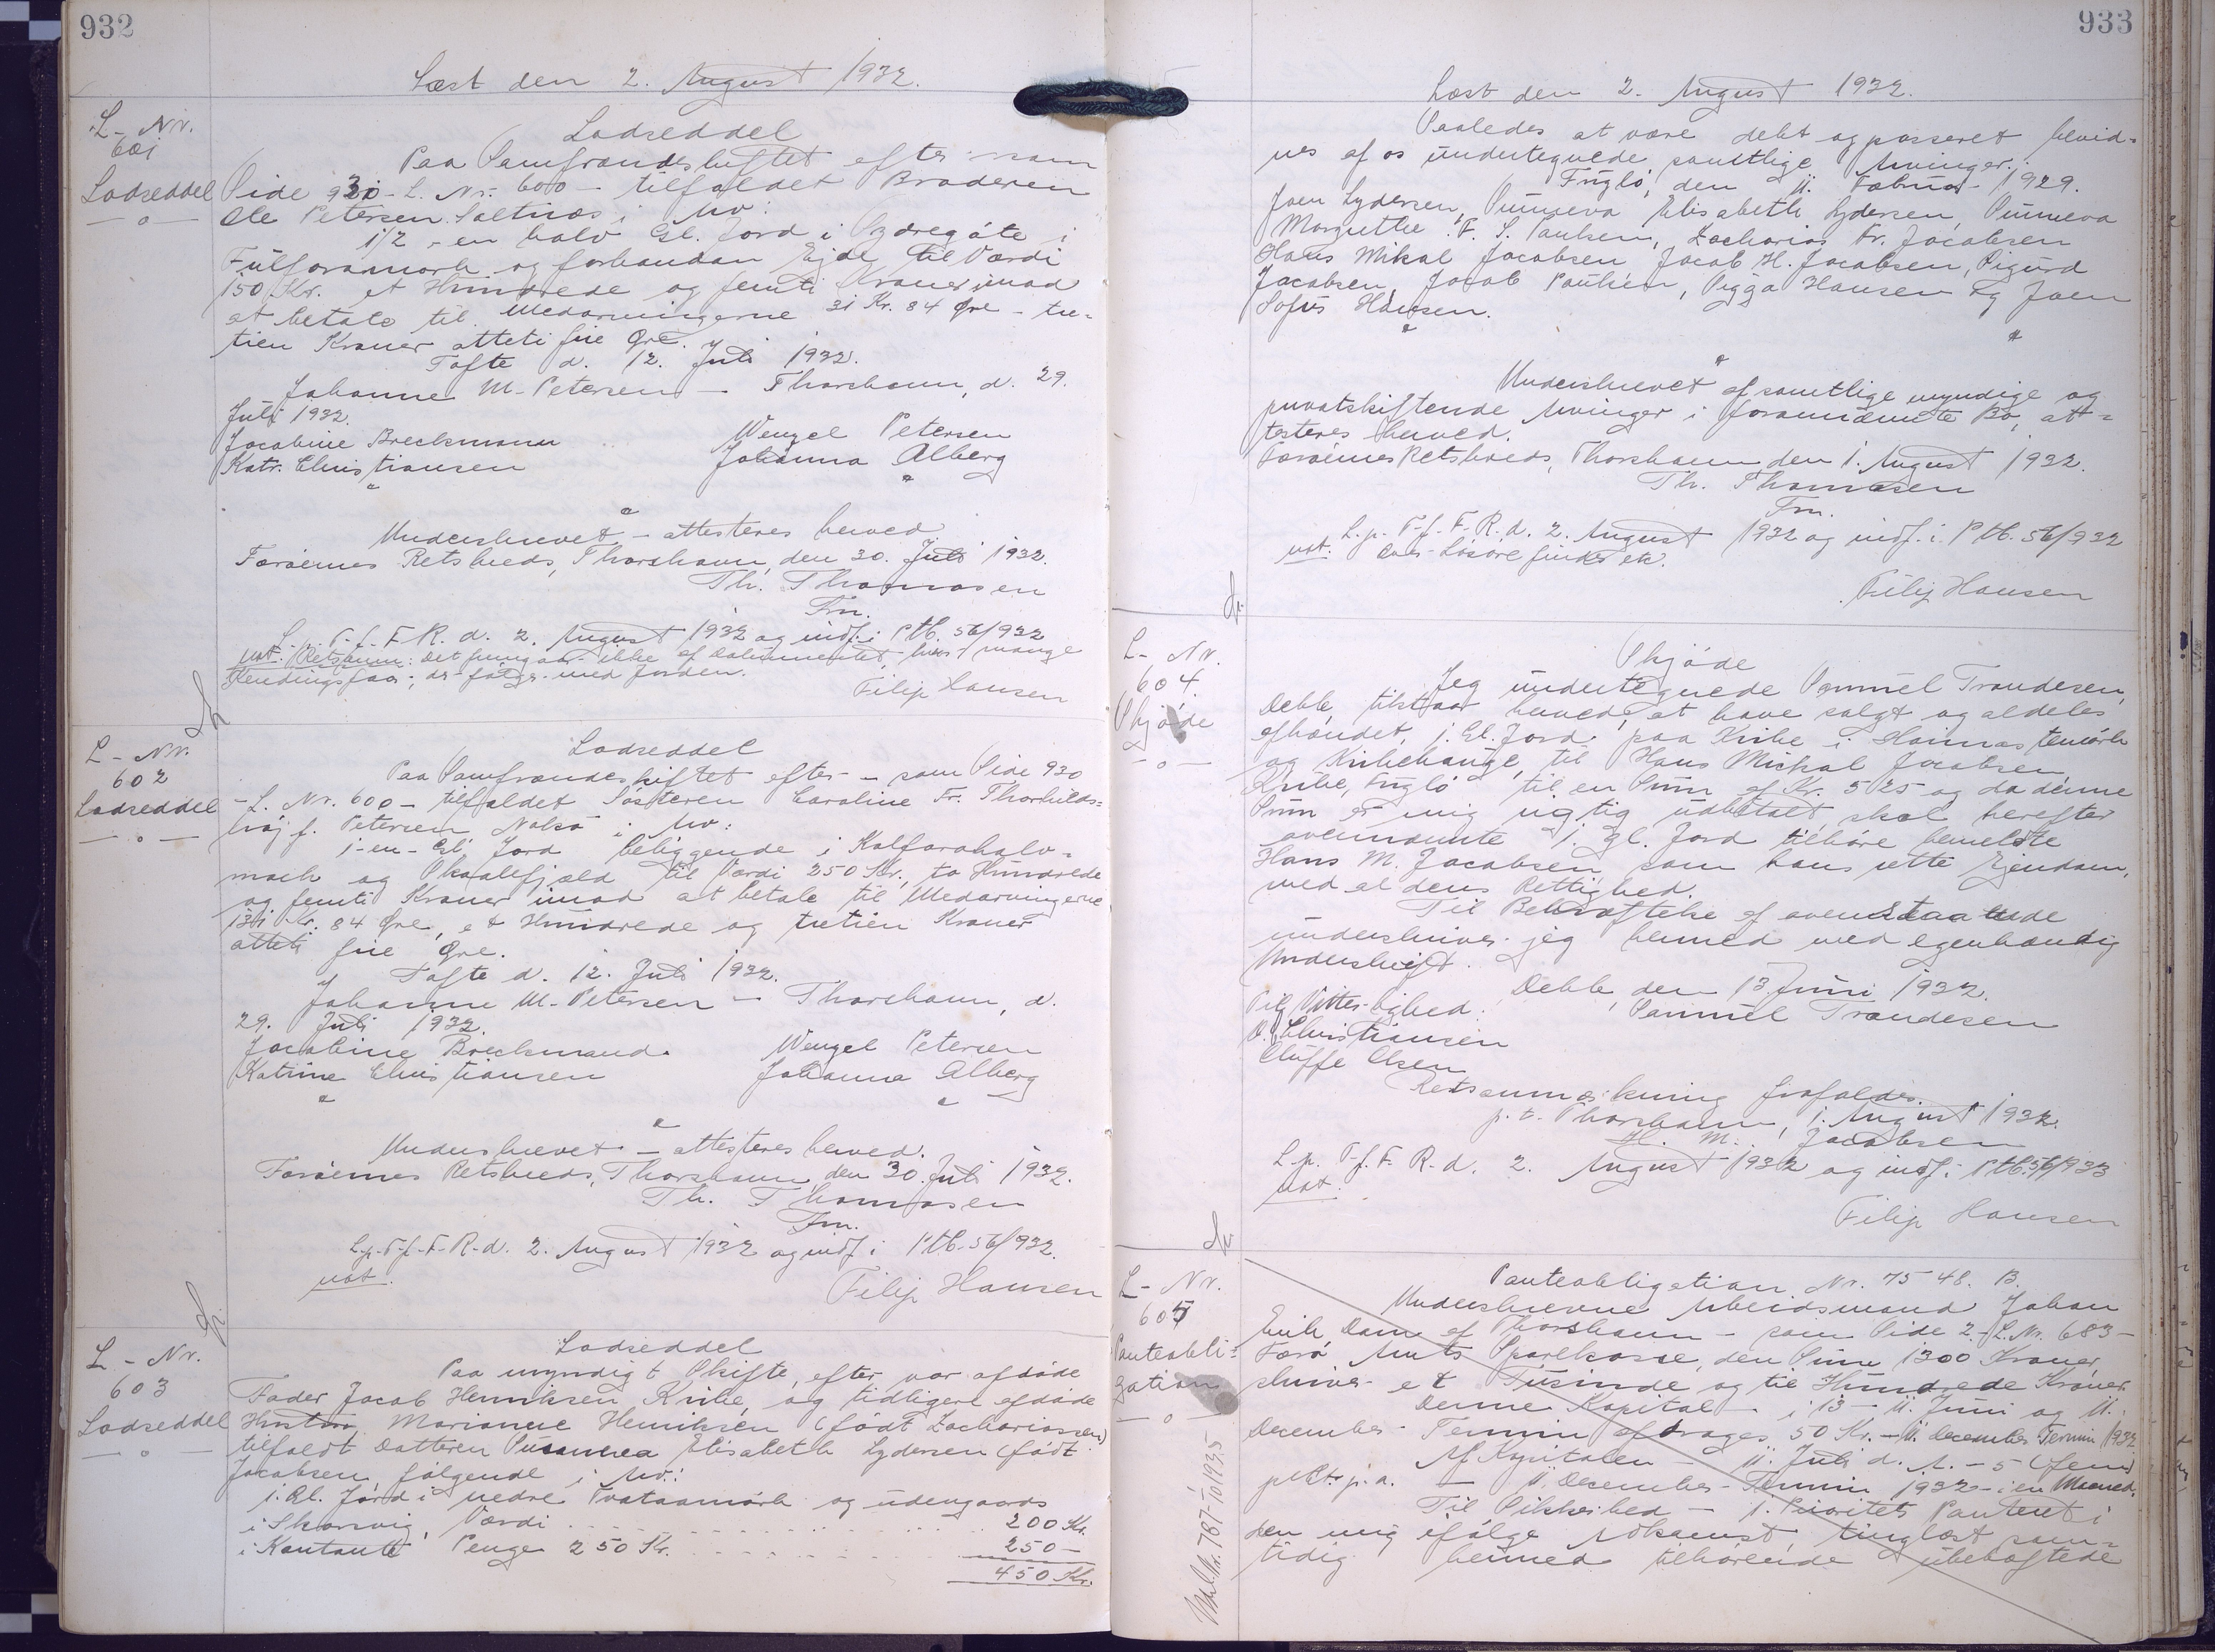 932
Læst den 2. August 1932.
L-Nr.
601
Lodseddel
Lodseddel
Paa Samfrændeskiftet efter - som
Side 930 - L. Nr. 600 - tilfaldet Broderen
Ole Petersen Saltnæs i Arv:
1/2 - en halv Gl. Jord i
og forhandan Ejde til Værdi
150 Kr. et Hundrede og femti Kroner imod
at betale til Medarvingerne 31 Kr. 84 Øre - tre-
tien Kroner otteti fire Øre.
Tofte d. 12. Juli 1932.
Johanne M. Petersen - Thorshavn, d. 29.
Juli 1932.
Jacobine Breckmann
Wenzel Petersen
Katr. Christiansen
Johanna Alberg
Underskrevet - attesteres herved.
Færøernes Retskreds, Thorshavn, den 30. Juli 1932.
Th. Thomasen
Fm.
L. p. T. f. F. R. d. 2. August 1932 og indf. i Ptb. 56/932
Retsanm: Det fremgaar ikke af Dokumentet, hvor mange
der følger med Jorden.
Filip Hansen
L-Nr.
602
Lodseddel
Lodseddel
Paa Samfrændeskiftet efter - som Side 930
- L. Nr. 600 - tilfaldet Søsteren Caroline Fr. Thorkilds-
høj f. Petersen Nolsø i Arv:
1 - en - Gl. Jord beliggende i Kalfarahalv-
mørk og til Værdi 250 Kr., to Hundrede
og femti Kroner imod at betale til Medarvingerne
131 Kr. 84 Øre, et Hundrede og tretien Kroner
otteti fire Øre.
Tofte d. 12. Juli 1932.
Johanne M. Petersen - Thorshavn, d.
29. Juli 1932.
Jacobine Breckmand.
Wenzel Petersen
Katrine Christiansen
Johanna Alberg
Underskrevet - attesteres herved.
Færøernes Retskreds, Thorshavn den 30. Juli 1932.
Th. Thomasen
Fm.
L. p. T. f. F. R. d. 2. August 1932 og indf. i Ptb. 56/932.
Filip Hansen
L-Nr.
603
Lodseddel
Lodseddel
Paa myndigt Skifte, efter vor afdøde
Fader Jacob Henriksen Kirke, og tidligere afdøde
Hustru Marianne Henriksen (født Zachariassen)
tilfaldt Datteren Elisabeth Lydersen (født
Jacobsen følgende i Arv:
1. Gl. Jord i nedre og udengaards
i Skarvvig, Værdi 200 Kr.
i Kontante Penge 250 Kr. 250 -
450 Kr.
933
Læst den 2. August 1932.
Saaledes at være delt og passeret bevid-
nes af os undertegnede samtlige Arvinger.
Fuglø, den 11. Februar 1929.
Joen Lydersen, Sunneva Elisabeth Lydersen, Sunneva
Margrethe F. S. Paulsen, Zacharias Fr. Jacobsen
Hans Mikal Jacobsen Jacob H. Jacobsen, Sigurd
Jacobsen, Jacob Paulsen, Sigga Hansen og Joen
Sofus Hansen.
Underskrevet af samtlige myndige og
privatskiftende Arvinger i forannævnte Bo, at-
testeres herved.
Færøernes Retskreds, Thorshavn den 1. August 1932.
Th. Thomasen
Fm.
L. p. T. f. F. R. d. 2. August 1932 og indf. i Ptb. 56/932
Filip Hansen
L-Nr.
604.
Skjøde
Skjøde
Jeg undertegnede Samuel Trondesen,
Deble, tilstaar herved, at have solgt og aldeles
afhændet 1. Gl. Jord paa Kirke i
og til Hans Mickal Jacobsen,
Kirke, Fuglø til en Sum af Kr. 525 og da denne
Sum er mig rigtig udbetalt, skal herefter
ovennævnte 1. Gl. Jord tilhøre bemeldte
Hans M. Jacobsen, som hans rette Ejendom,
med al dens Rettighed.
Til Bekræftelse af ovenstaaende
underskriver jeg hermed med egenhændig
Underskrift.
Deble den 13. Juni 1932.
Til Vitterlighed:
Samuel Trondesen
D. Christiansen
Cluffe Olsen
Retsanmærkning frafaldes.
p. t. Thorshavn, 1. August 1932.
H. M. Jacobsen
L. p. T. f. F. R. d. 2. August 1932 og indf. i Ptb. 56/933
Filip Hansen
L-Nr.
605
Panteobli-
gation
Panteobligation Nr. 7548. B.
Underskrevne Arbeidsmand Johan
Erik Dam af Thorshavn - som Side 2 - L. Nr. 683 -
Færø Amts Sparekasse, den Sum 1300 Kroner,
skriver et Tusinde og tre Hundrede Kroner.
Denne Kapital - i 13 - 11. Juni og 11.
December Termin afdrages 50 Kr. - 11. December Termin 1932
Af Kapitalen - 11. Juli d. A. - 5 (fem)
p. a. - 11. December Termin 1932 - i en Maaned.
Til Sikkerhed - 1. Prioritets Panteret i
den mig ifølge Adkomst, tinglæst sam-
tidig hermed tilhørende ubehæftede